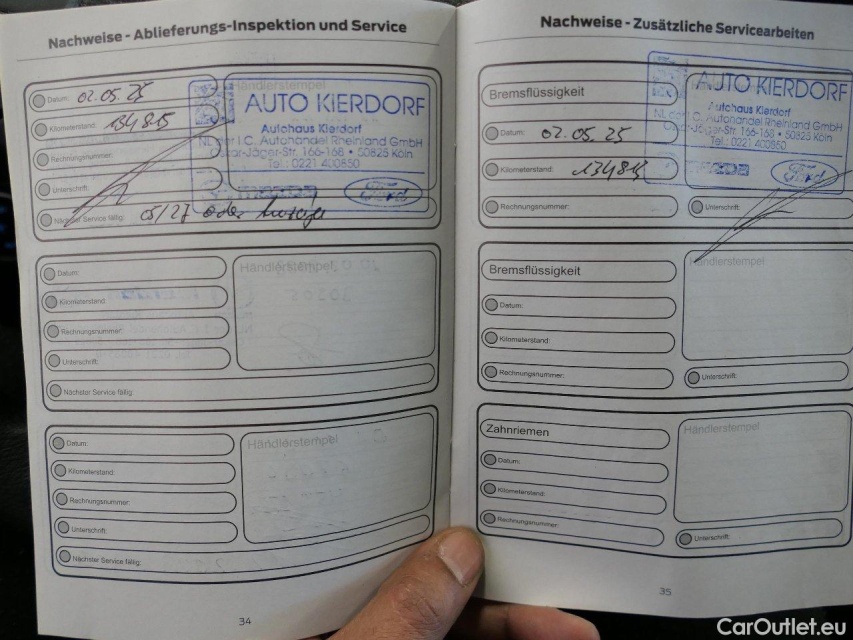 Nachweise - Ablieferungs-Inspektion und Service
Datum: 02.05.25
Kilometerstand: 134815
Rechnungsnummer:
Unterschrift:
Nächster Service fällig: 05/27 oder Anzeige
Händlerstempel
AUTO KIERDORF
Autohaus Kierdorf
NL der I.C. Autohandel Rheinland GmbH
Oskar-Jäger-Str. 166-168 • 50825 Köln
Tel.: 0221 400850
mazda
Ford
Datum:
Kilometerstand:
Rechnungsnummer:
Unterschrift:
Nächster Service fällig:
Händlerstempel
Datum:
Kilometerstand:
Rechnungsnummer:
Unterschrift:
Nächster Service fällig:
Händlerstempel
34
Nachweise - Zusätzliche Servicearbeiten
Bremsflüssigkeit
Datum: 02.05.25
Kilometerstand: 134815
Rechnungsnummer:
AUTO KIERDORF
Autohaus Kierdorf
NL der I.C. Autohandel Rheinland GmbH
Oskar-Jäger-Str. 166-168 • 50825 Köln
Tel.: 0221 400850
mazda
Ford
Unterschrift:
Bremsflüssigkeit
Datum:
Kilometerstand:
Rechnungsnummer:
Händlerstempel
Unterschrift:
Zahnriemen
Datum:
Kilometerstand:
Rechnungsnummer:
Händlerstempel
Unterschrift:
35
CarOutlet.eu